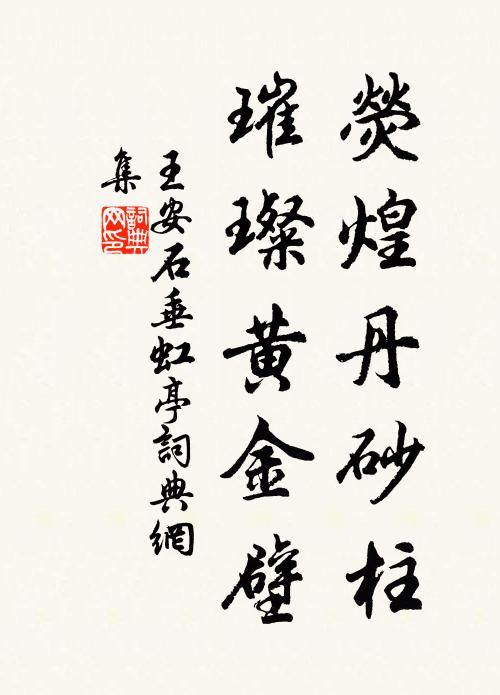 熒煌丹砂柱
璀璨黃金壁
王安石垂虹亭詞典網
集
詞典網印